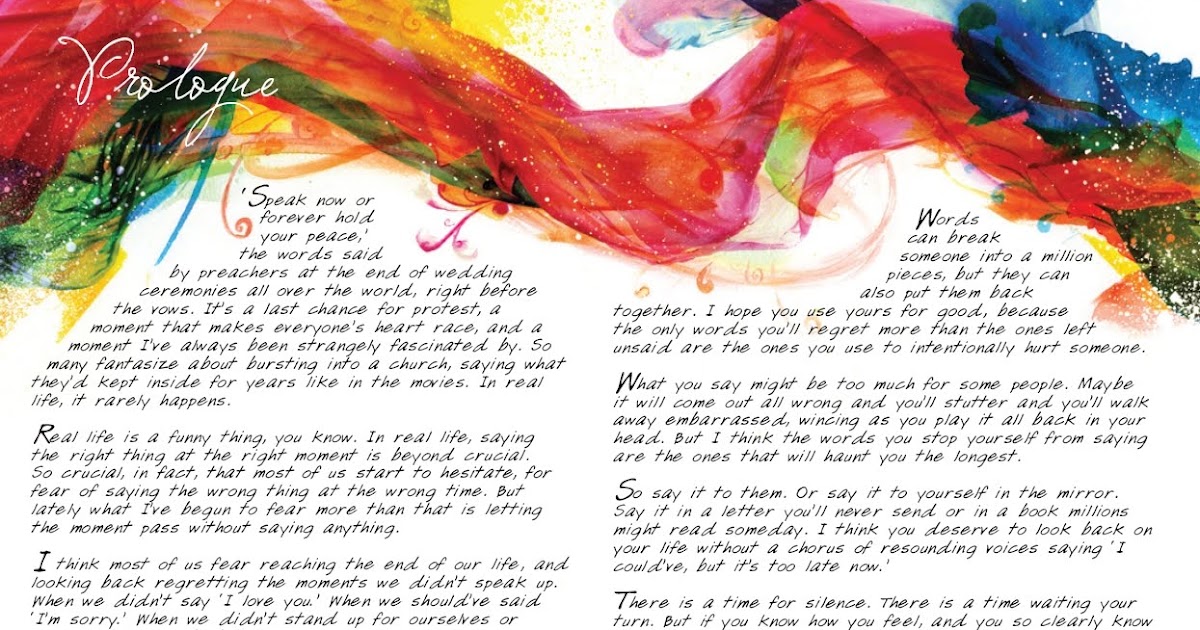 Prologue
'Speak now or
forever hold
your peace,'
the words said
by preachers at the end of wedding
ceremonies all over the world, right before
the vows. It's a last chance for protest, a
moment that makes everyone's heart race, and a
moment I've always been strangely fascinated by. So
many fantasize about bursting into a church, saying what
they'd kept inside for years like in the movies. In real
life, it rarely happens.
Real life is a funny thing, you know. In real life, saying
the right thing at the right moment is beyond crucial.
So crucial, in fact, that most of us start to hesitate, for
fear of saying the wrong thing at the wrong time. But
lately what I've begun to fear more than that is letting
the moment pass without saying anything.
I think most of us fear reaching the end of our life, and
looking back regretting the moments we didn't speak up.
When we didn't say 'I love you.' When we should've said
'I'm sorry.' When we didn't stand up for ourselves or
Words
can break
someone into a million
pieces, but they can
also put them back
together. I hope you use yours for good, because
the only words you'll regret more than the ones left
unsaid are the ones you use to intentionally hurt someone.
What you say might be too much for some people. Maybe
it will come out all wrong and you'll stutter and you'll walk
away embarrassed, wincing as you play it all back in your
head. But I think the words you stop yourself from saying
are the ones that will haunt you the longest.
So say it to them. Or say it to yourself in the mirror.
Say it in a letter you'll never send or in a book millions
might read someday. I think you deserve to look back on
your life without a chorus of resounding voices saying 'I
could've, but it's too late now.'
There is a time for silence. There is a time waiting your
turn. But if you know how you feel, and you so clearly know